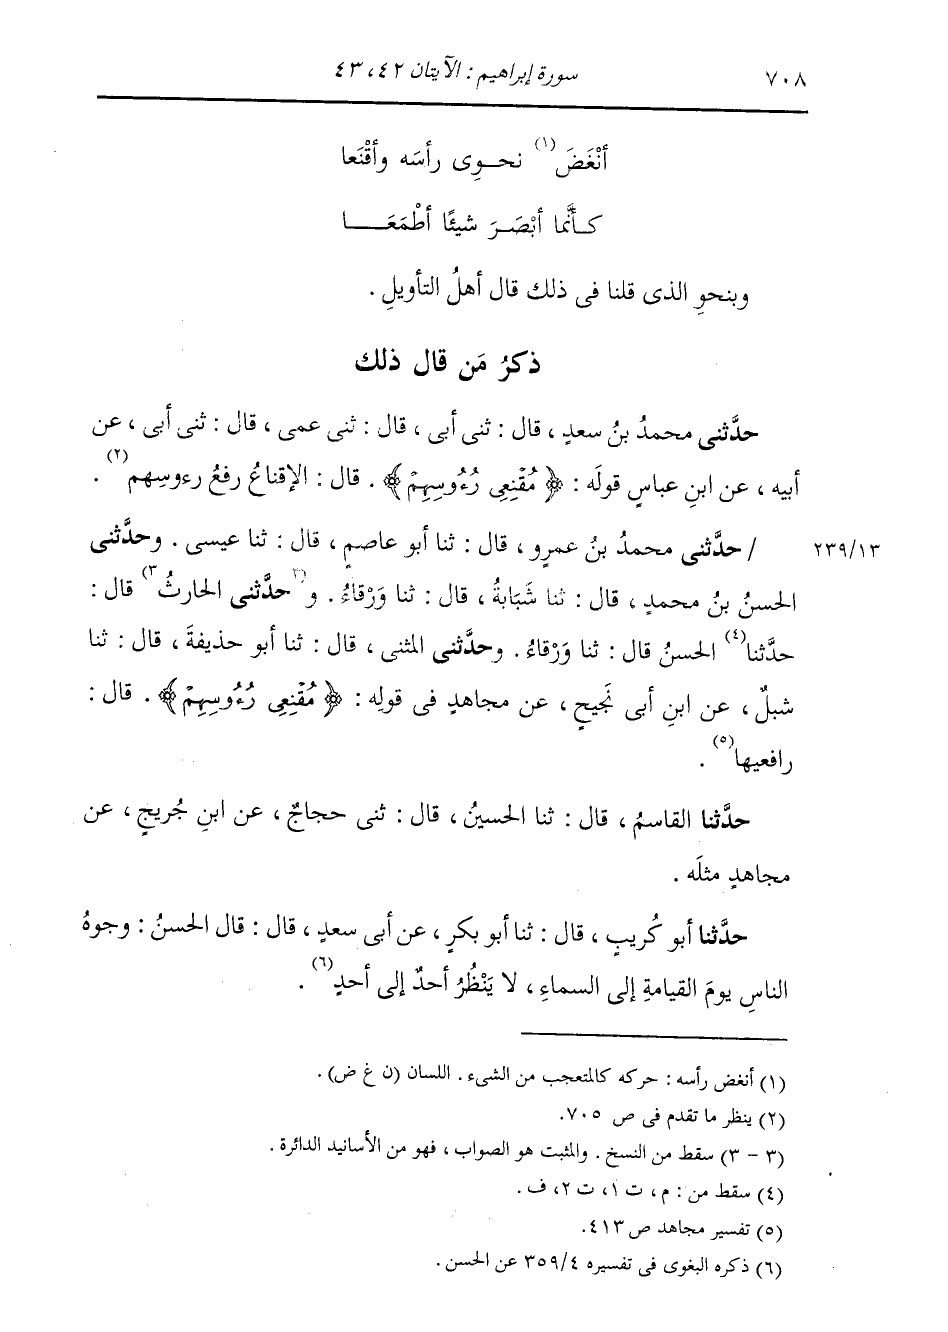 ٧٠٨ سورة إبراهيم : الآيتان ٤٢ ، ٤٣
أنْغَضَ(١) نحـوِى رأسَه وأقْنَعا
كـأنَّما أبْصَـرَ شيئًا أطْمَعَــا
وبنحوِ الذى قلنا فى ذلك قال أهلُ التأويلِ .
ذكرُ مَن قال ذلك
حدَّثنى محمدُ بنُ سعدٍ ، قال : ثنى أبى ، قال : ثنى عمى ، قال : ثنى أبى ، عن
أبيه ، عن ابنِ عباسٍ قولَه : ﴿ مُقْنِعِى رُءُوسِهِمْ ﴾ . قال : الإقناعُ رفعُ رءوسِهم(٢) .
٢٣٩/١٣ / حدَّثنى محمدُ بنُ عمرٍو ، قال : ثنا أبو عاصمٍ ، قال : ثنا عيسى . وحدَّثنى
الحسنُ بنُ محمدٍ ، قال : ثنا شَبَابةُ ، قال : ثنا وَرْقاءُ . و(٣حدَّثنى الحارثُ٣) قال :
حدَّثنا(٤) الحسنُ قال : ثنا وَرْقاءُ . وحدَّثنى المثنى ، قال : ثنا أبو حذيفةَ ، قال : ثنا
شبلٌ ، عن ابنِ أبى نَجيحٍ ، عن مجاهدٍ فى قولِه : ﴿ مُقْنِعِى رُءُوسِهِمْ ﴾ . قال :
رافعيها(٥) .
حدَّثنا القاسمُ ، قال : ثنا الحسينُ ، قال : ثنى حجاجٌ ، عن ابنِ جُريجٍ ، عن
مجاهدٍ مثلَه .
حدَّثنا أبو كُريبٍ ، قال : ثنا أبو بكرٍ ، عن أبى سعدٍ ، قال : قال الحسنُ : وجوهُ
الناسِ يومَ القيامةِ إلى السماءِ ، لا يَنْظُرُ أحدٌ إلى أحدٍ(٦) .
(١) أنغض رأسه : حركه كالمتعجب من الشىء . اللسان (ن غ ض) .
(٢) ينظر ما تقدم فى ص ٧٠٥.
(٣ - ٣) سقط من النسخ . والمثبت هو الصواب ، فهو من الأسانيد الدائرة .
(٤) سقط من : م ، ت ١، ت ٢، ف .
(٥) تفسير مجاهد ص ٤١٣.
(٦) ذكره البغوى فى تفسيره ٣٥٩/٤ عن الحسن .